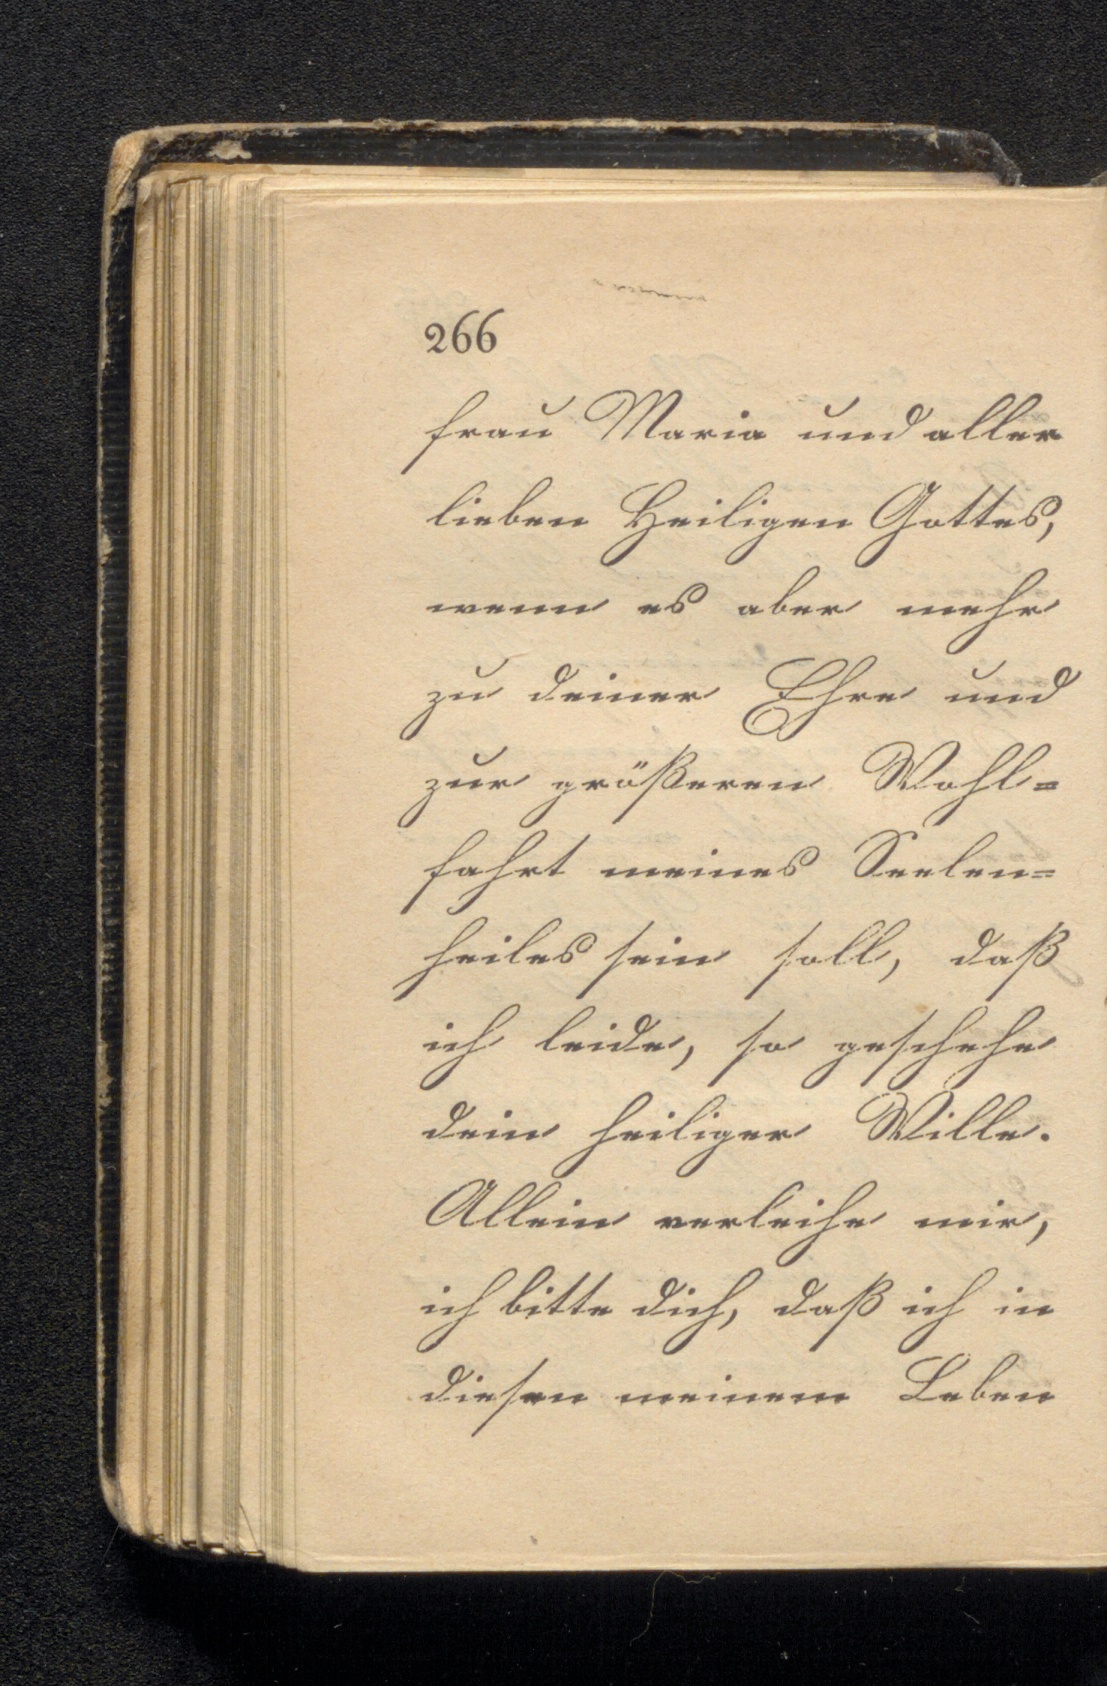 266
frau Maria und aller
lieben Heiligen Gottes,
wenn es aber mehr
zu deiner Ehre und
zur größeren Wohl=
fahrt meines Seelen=
heiles sein soll, daß
ich leide, so geschehe
dein heiliger Wille.
Allein verleihe mir,
ich bitte dich, daß ich in
diesen meinem Leben